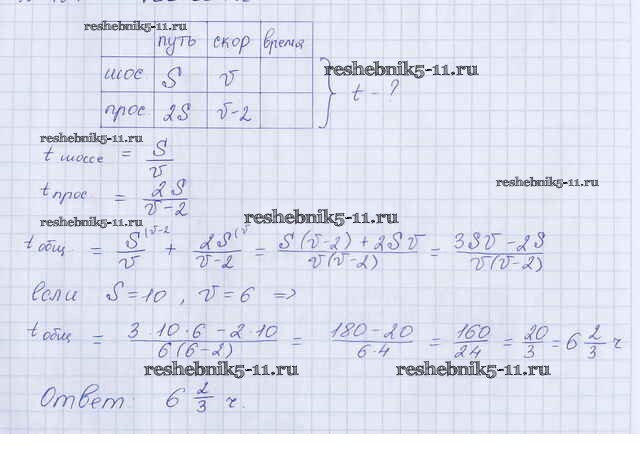 reshebnik5-11.ru
путь скор время
шос. S v
прос. 2S v-2
} t - ?
reshebnik5-11.ru
reshebnik5-11.ru
t шоссе = S/v
t прос. = 2S/(v-2)
reshebnik5-11.ru
reshebnik5-11.ru
reshebnik5-11.ru
t общ. = S^(v-2/v + 2S^(v/(v-2) = (S(v-2)+2Sv)/(v(v-2)) = (3Sv-2S)/(v(v-2))
если S=10, v=6 =>
t общ = (3·10·6-2·10)/(6(6-2)) = (180-20)/(6·4) = 160/24 = 20/3 = 6 2/3 ч
reshebnik5-11.ru reshebnik5-11.ru
Ответ: 6 2/3 ч.